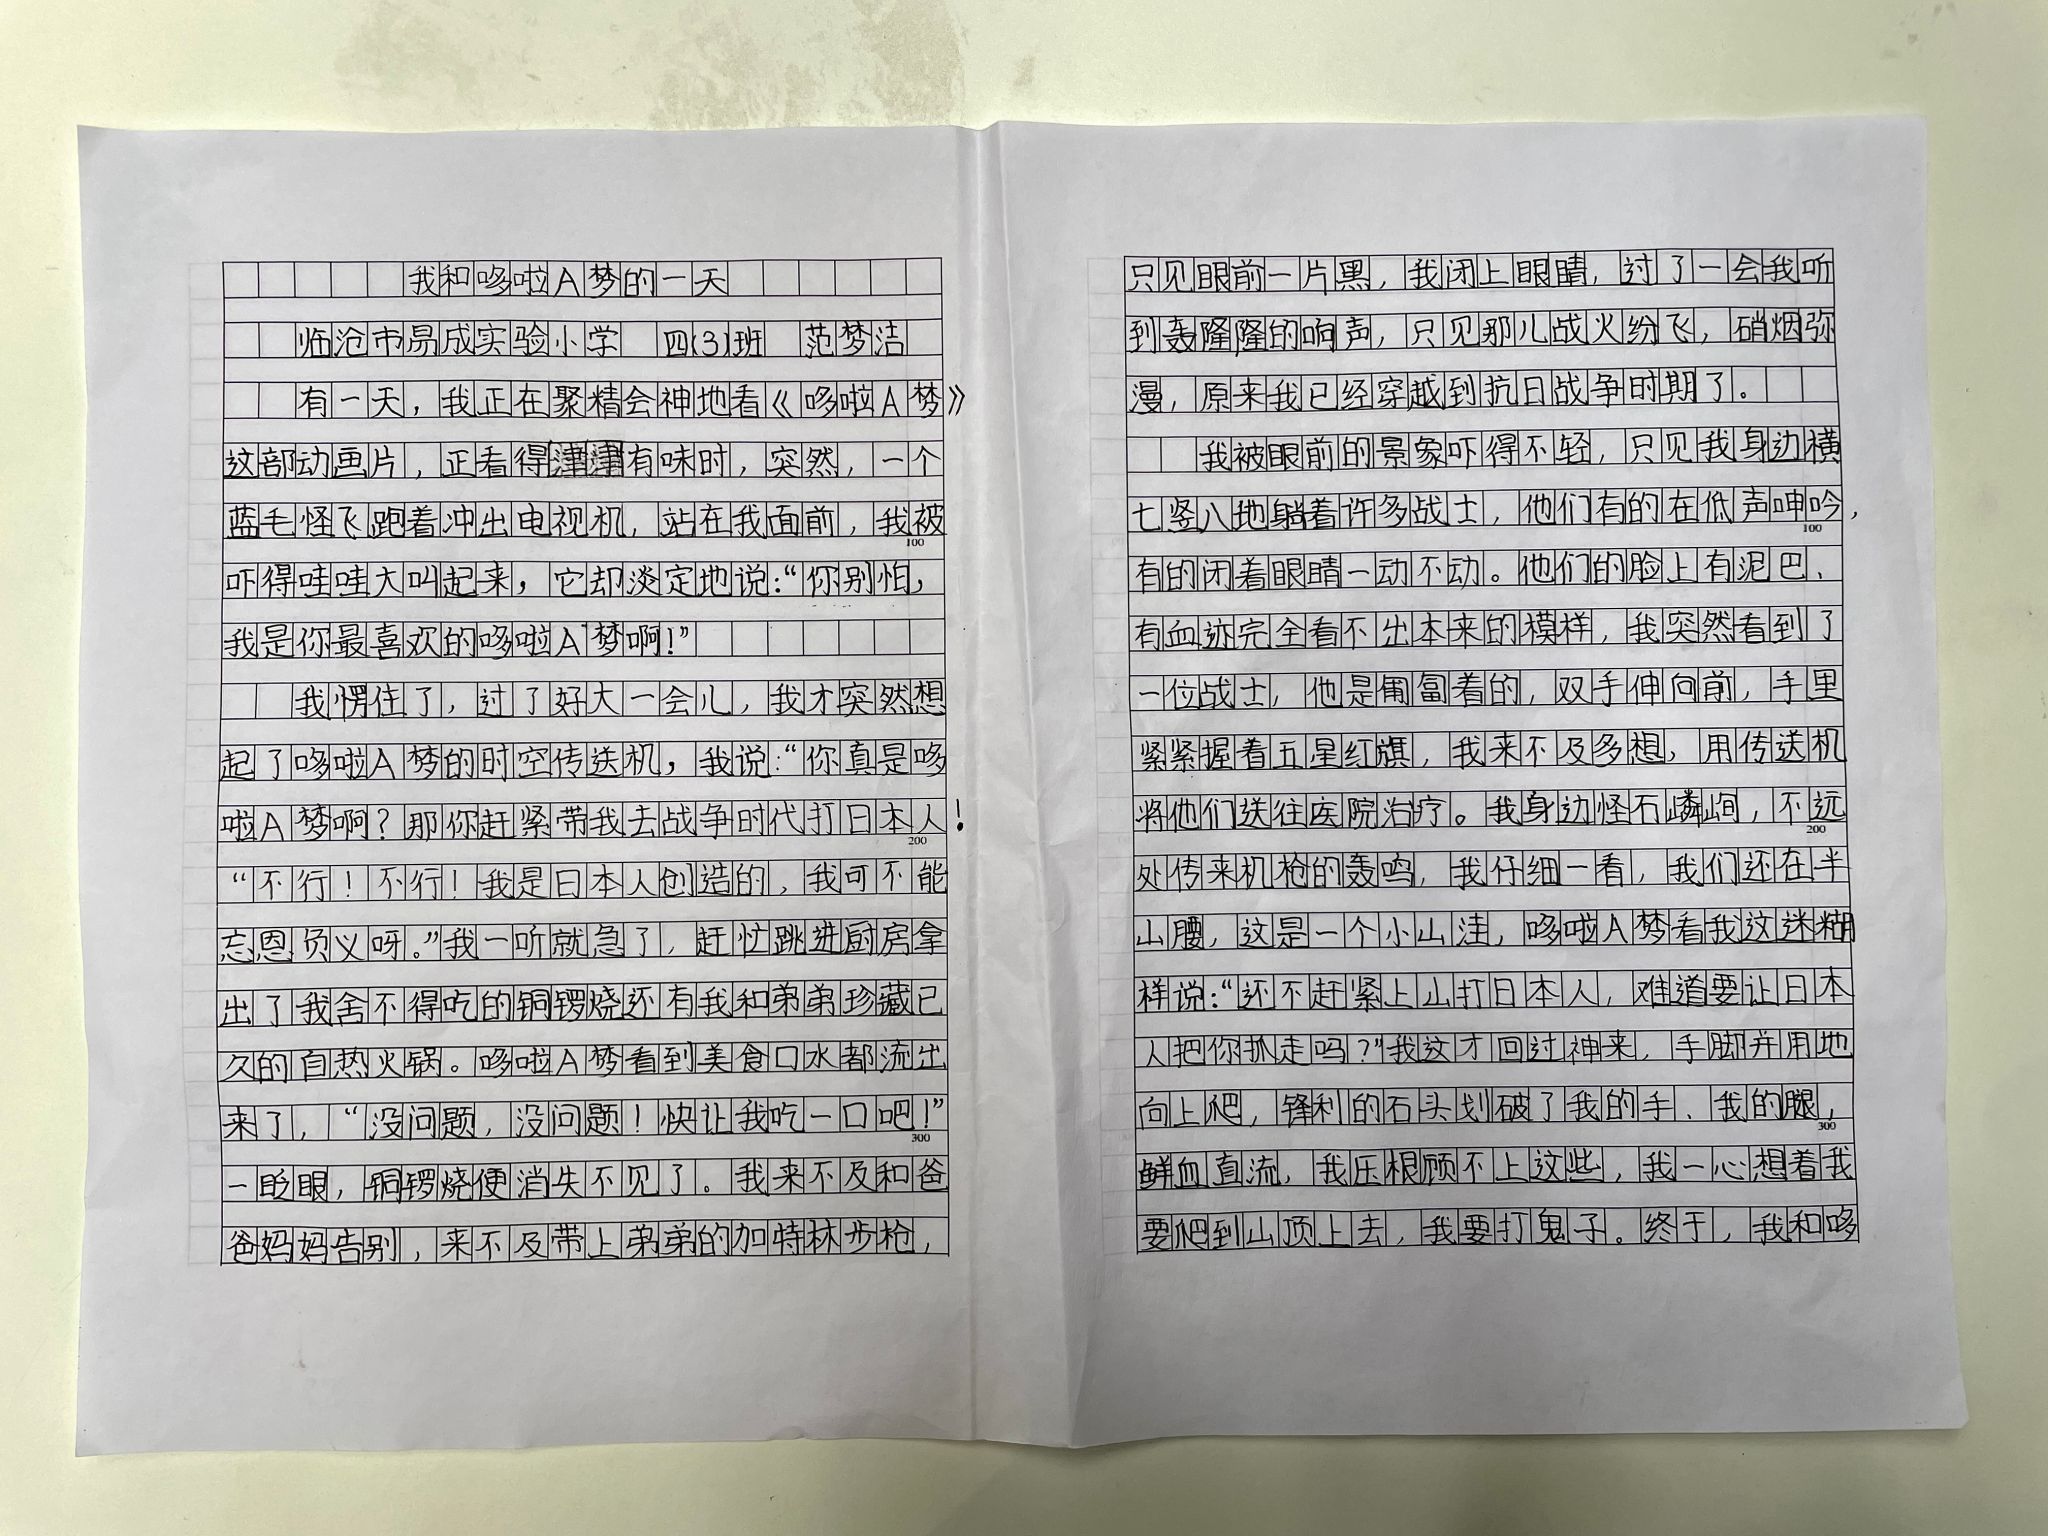 我和哆啦A梦的一天
临沧市易成实验小学 四(3)班 范梦洁
有一天，我正在聚精会神地看《哆啦A梦》
这部动画片，正看得津津有味时，突然，一个
蓝毛怪飞跑着冲出电视机，站在我面前，我被
100
吓得哇哇大叫起来，它却淡定地说：“你别怕，
我是你最喜欢的哆啦A梦啊！”
我愣住了，过了好大一会儿，我才突然想
起了哆啦A梦的时空传送机，我说：“你真是哆
啦A梦啊？那你赶紧带我去战争时代打日本人！
200
“不行！不行！我是日本人创造的，我可不能
忘恩负义呀。”我一听就急了，赶忙跳进厨房拿
出了我舍不得吃的铜锣烧还有我和弟弟珍藏已
久的自热火锅。哆啦A梦看到美食口水都流出
来了，“没问题，没问题！快让我吃一口吧！”
300
一眨眼，铜锣烧便消失不见了。我来不及和爸
爸妈妈告别，来不及带上弟弟的加特林步枪，
只见眼前一片黑，我闭上眼睛，过了一会我听
到轰隆隆的响声，只见那儿战火纷飞，硝烟弥
漫，原来我已经穿越到抗日战争时期了。
我被眼前的景象吓得不轻，只见我身边横
七竖八地躺着许多战士，他们有的在低声呻吟，
100
有的闭着眼睛一动不动。他们的脸上有泥巴、
有血迹完全看不出本来的模样，我突然看到了
一位战士，他是匍匐着的，双手伸向前，手里
紧紧握着五星红旗，我来不及多想，用传送机
将他们送往医院治疗。我身边怪石嶙峋，不远
200
处传来机枪的轰鸣，我仔细一看，我们还在半
山腰，这是一个小山洼，哆啦A梦看我这迷糊
样说：“还不赶紧上山打日本人，难道要让日本
人把你抓走吗？”我这才回过神来，手脚并用地
向上爬，锋利的石头划破了我的手、我的腿，
300
鲜血直流，我压根顾不上这些，我一心想着我
要爬到山顶上去，我要打鬼子。终于，我和哆